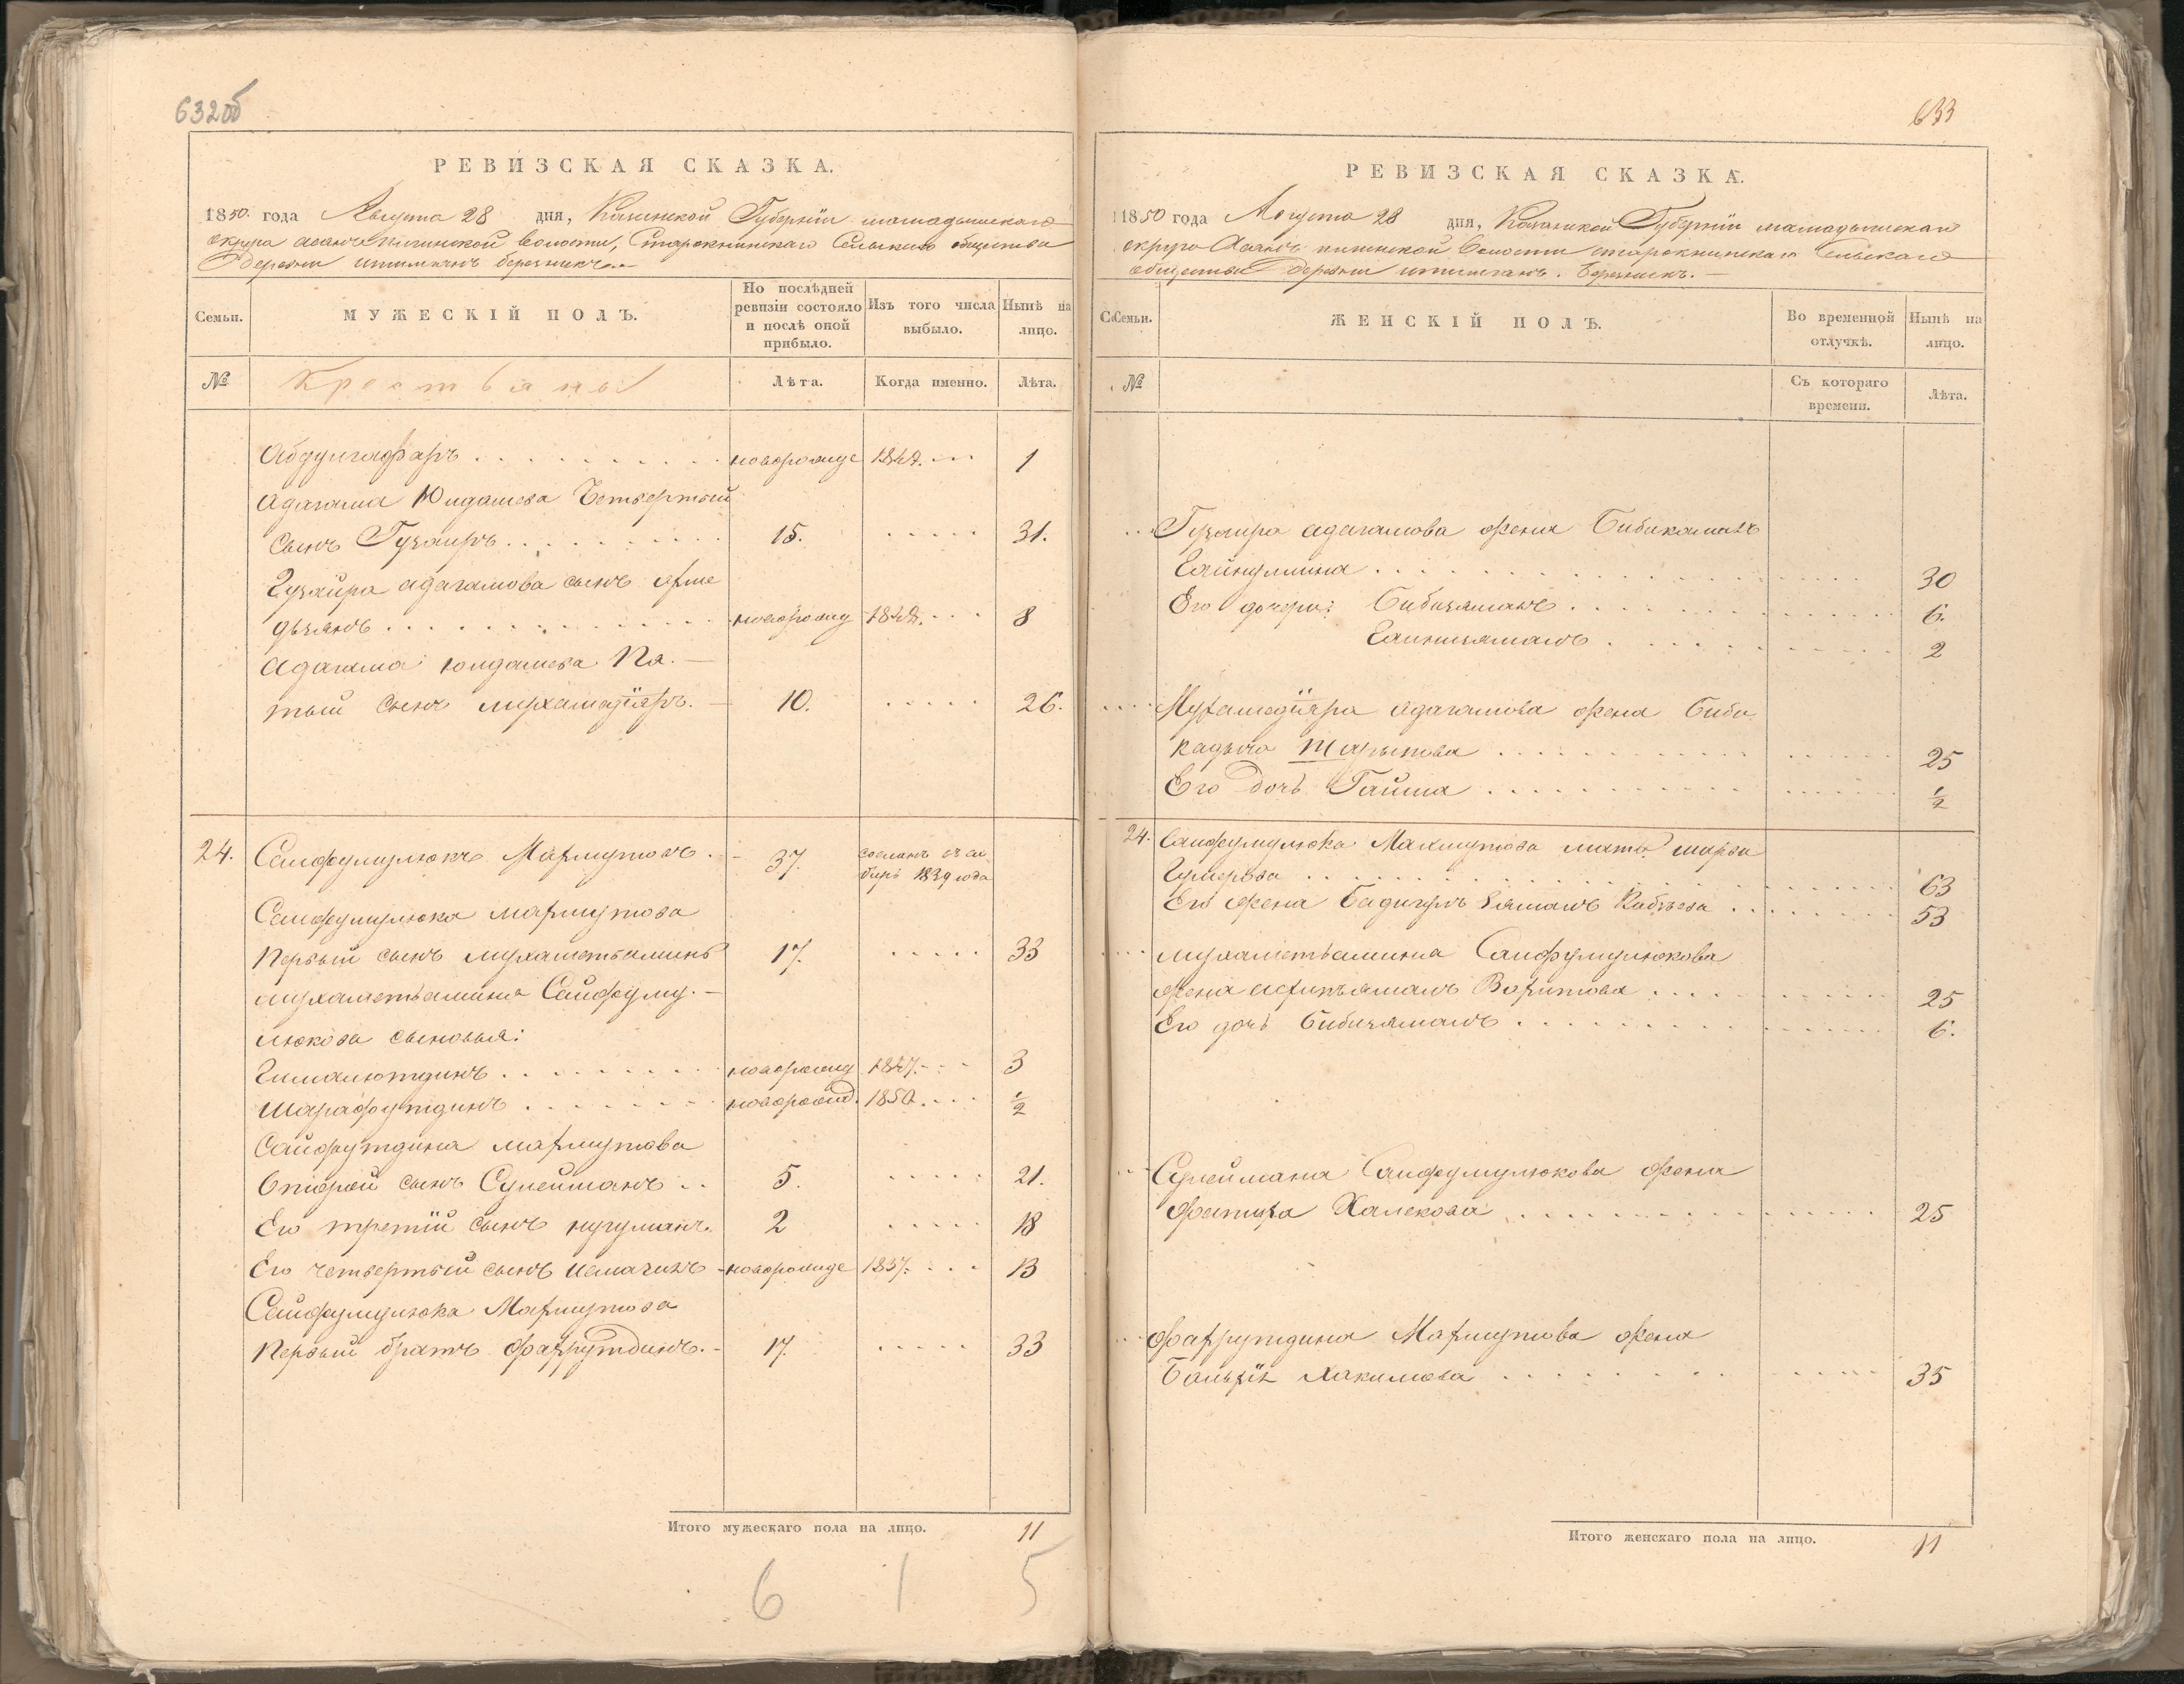 632об
РЕВИЗСКАЯ СКАЗКА.
1850 года Августа 28 дня, Казанской Губернiи мамадышскаго
округа асанъ Сельскаго общества
деревни
Семьи.
МУЖЕСКIЙ ПОЛЪ.
По послѣдней ревизiи состояло и послѣ оной прибыло.
Изъ того числа выбыло.
Нынѣ на лицо.
№
Крестьяны
Лѣта.
Когда именно.
Лѣта.
Абдулгафаръ новорожде 1849. 1
Адагама Юлдашева Четвертый
сынъ Гузаиръ 15. 31.
Гузаира адагамова сынъ
новорожд 8
Адагама юлдашева Пя.
тый сынъ мухамадiяръ. 10. 26.
24. Сайфулмулюкъ Махмутовъ 37. сосланъ въ си-
бирь 1839 года
Сайфулмулюка махмутова
Первый сынъ мухаметьаминъ 17. 33
мухаметьамина Сайфулму.
люкова сыновья:
новорожд 1847. 3
Шарафутдинъ новорожд. 1850. 1/2
Сайфутдина махмутова
Второй сынъ Сулейманъ 5. 21.
Его третiй сынъ нугуманъ. 2 18
Его четвертый сынъ исмагилъ новорожде 1837. 13
Сайфулмулюка Махмутова
Первый братъ Фахрутдинъ. 17. 33
Итого мужескаго пола на лицо. 11
6 1 5
633
РЕВИЗСКАЯ СКАЗКА.
1850 года Августа 28 дня, Казанской Губернiи мамадышскаго
округа волости Сельскаго
общества деревни
Семьи.
ЖЕНСКIЙ ПОЛЪ.
Во временной отлучкѣ.
Нынѣ на лицо.
№
Съ котораго времени.
Лѣта.
Гузаира адагамова жена Бибикамалъ
30
Его дочери: Бибизяманъ 6.
2
Мухамедiяра адагамова жена Биби
25
Его дочь Гайша 1/2
24. Сайфулмулюка Махмутова мать
Гумерова 63
Его жена 53
мухаметьамина Сайфулмулюкова
жена 25
Его дочь Бибизямалъ 6.
Сулеймана Сайфулмулюкова жена
Фатиха Халекова 25
Фахрутдина Махмутова жена
Хакимова 35
Итого женскаго пола на лицо. 11